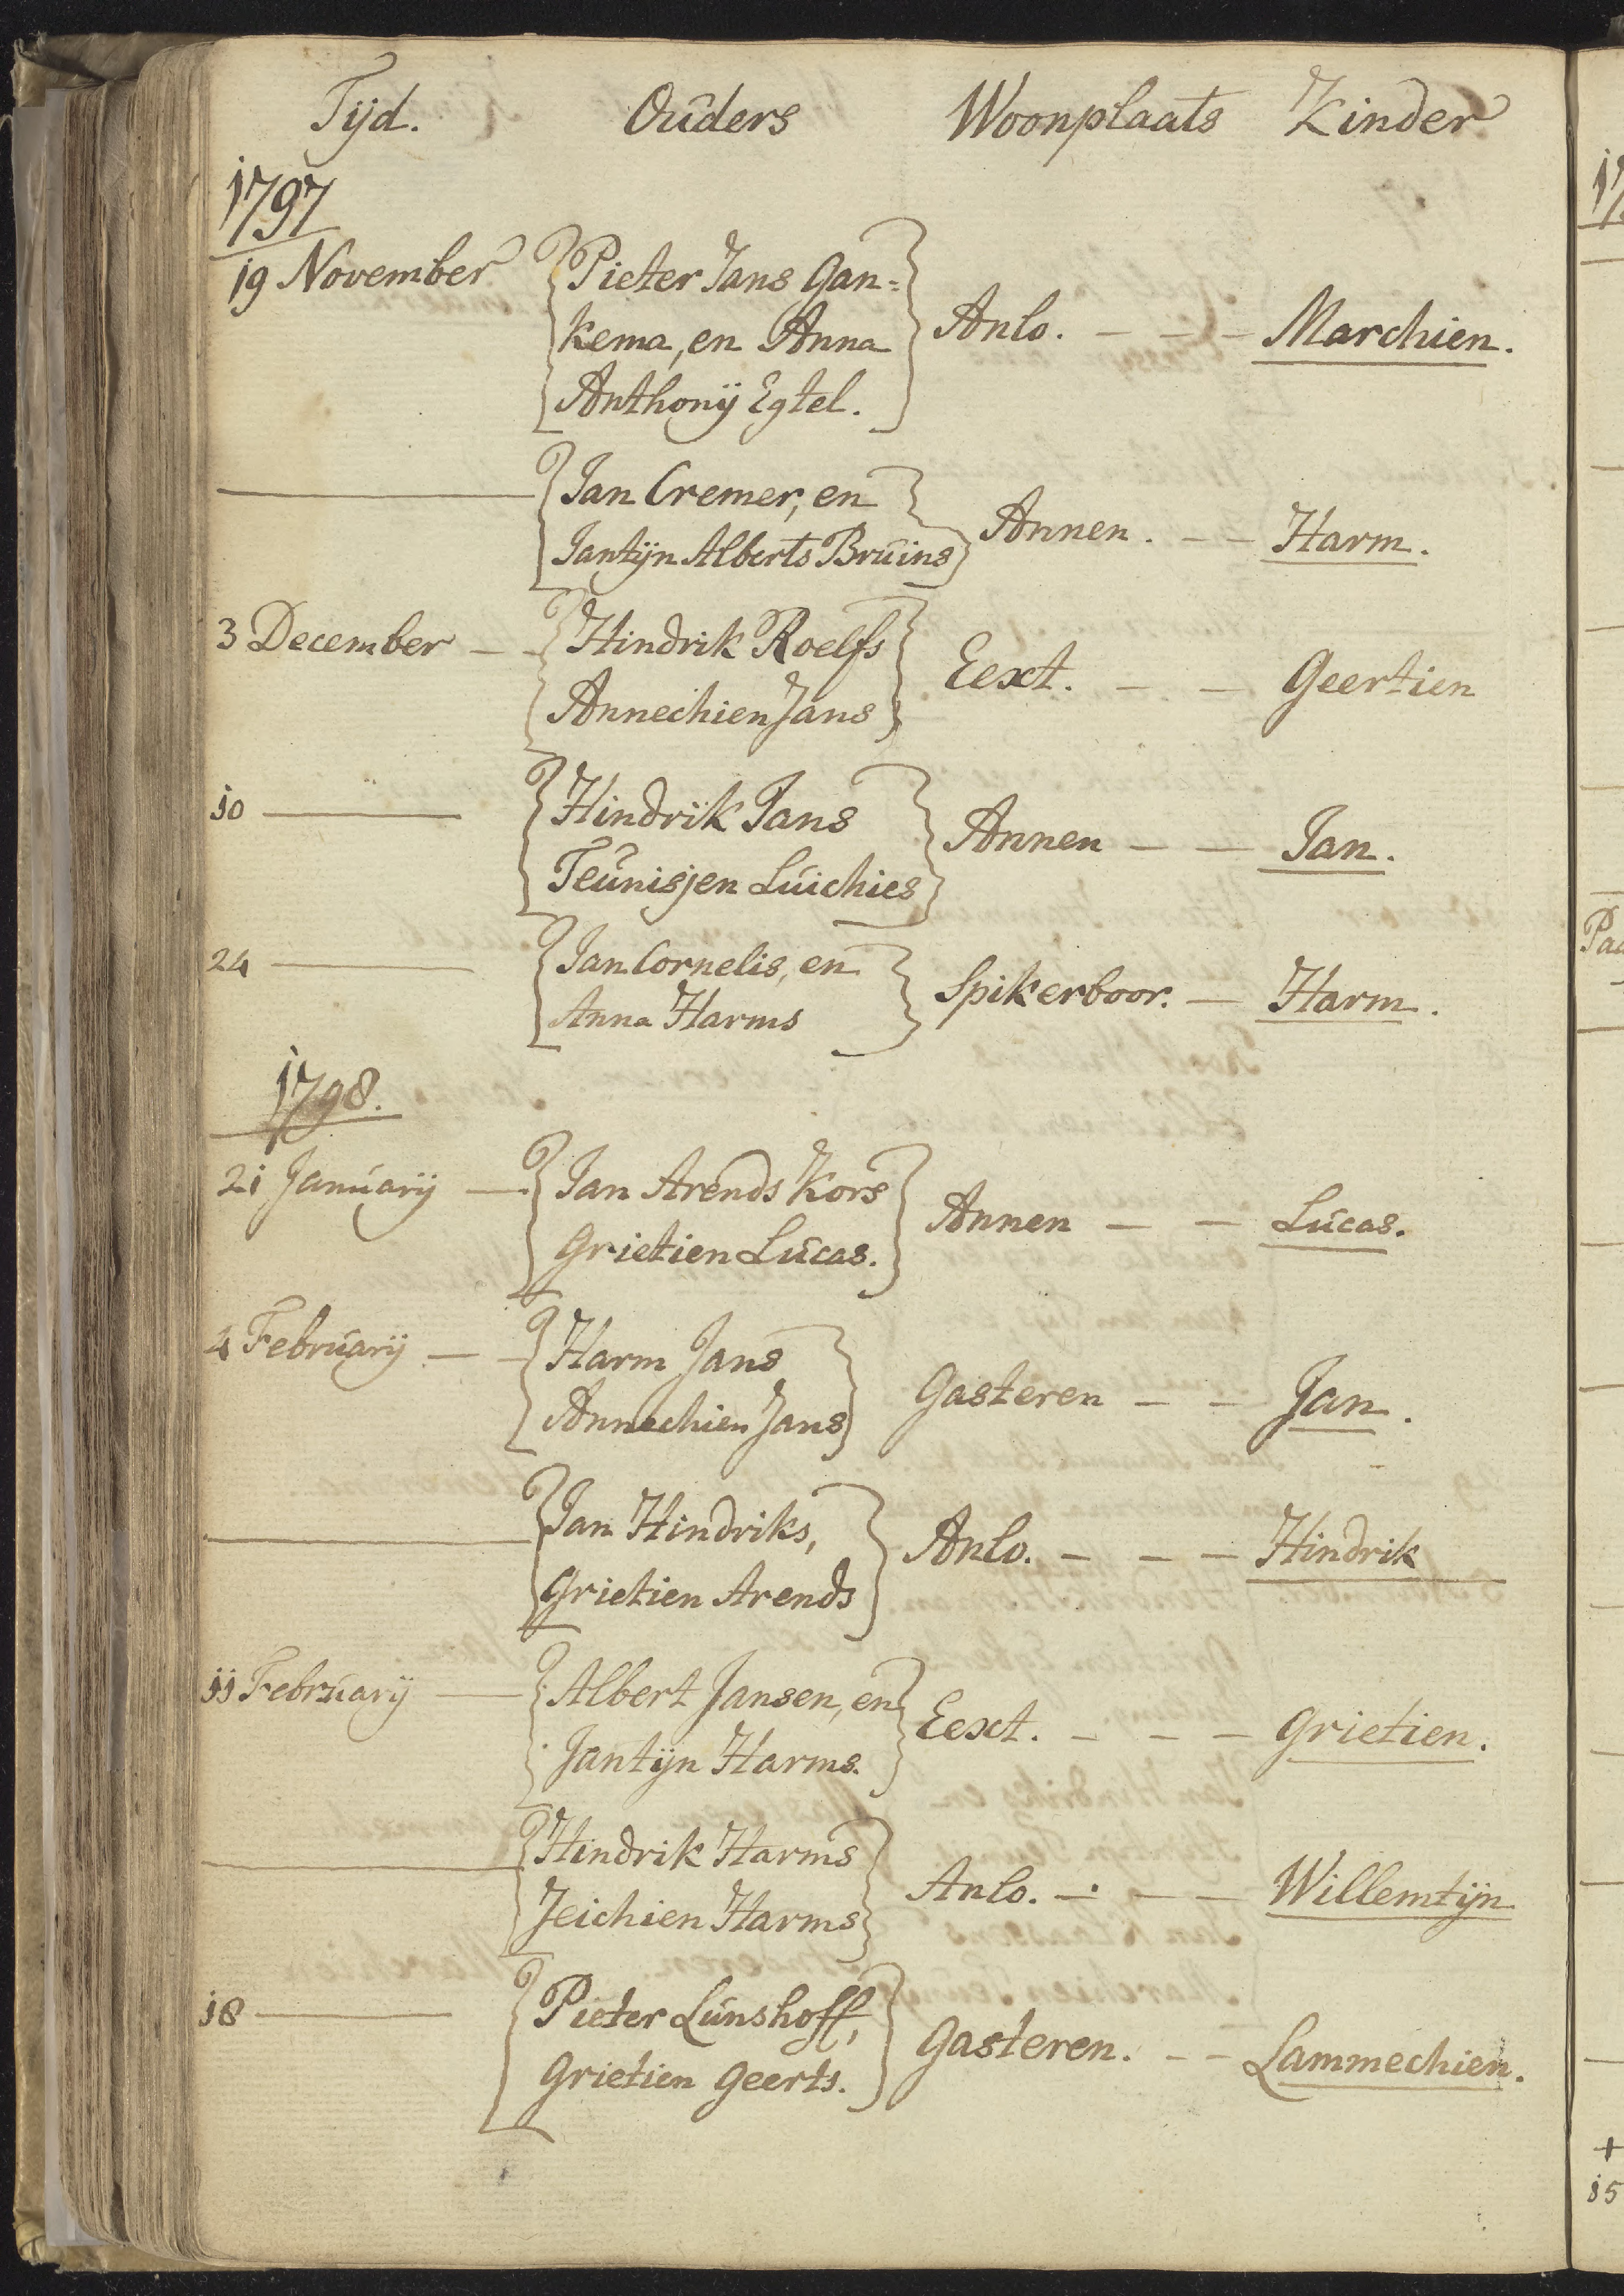 Tijd. Ouders Woonplaats Kinder
1797
19 November Pieter Jans Gan=
kema, en Anna Anlo. - - - Marchien.
Anthonij Egtel.
Jan Cremer, en
Jantijn Alberts Bruins Annen. - - Harm.
3 December - - Hindrik Roelfs
Annechien Jans Eext. - - Geertien
10 Hindrik Jans
Teunisjen Luichies Annen - - Jan.
24 Jan Cornelis, en
Anna Harms Spikerboor. - Harm.
1798.
21 Januarij - Jan Arends Kors
Grietien Lucas. Annen - - Lucas.
4 Februarij - - Harm Jans
Annechien Jans Gasteren - - Jan.
Jan Hindriks,
Grietien Arends Anlo. - - - Hindrik
11 Februarij - Albert Jansen, en
Jantijn Harms. Eext. - - - Grietien.
Hindrik Harms
Jeichien Harms Anlo. - - - Willemtijn
18 Pieter Lunshoff,
Grietien Geerts. Gasteren. - - Lammechien.
15